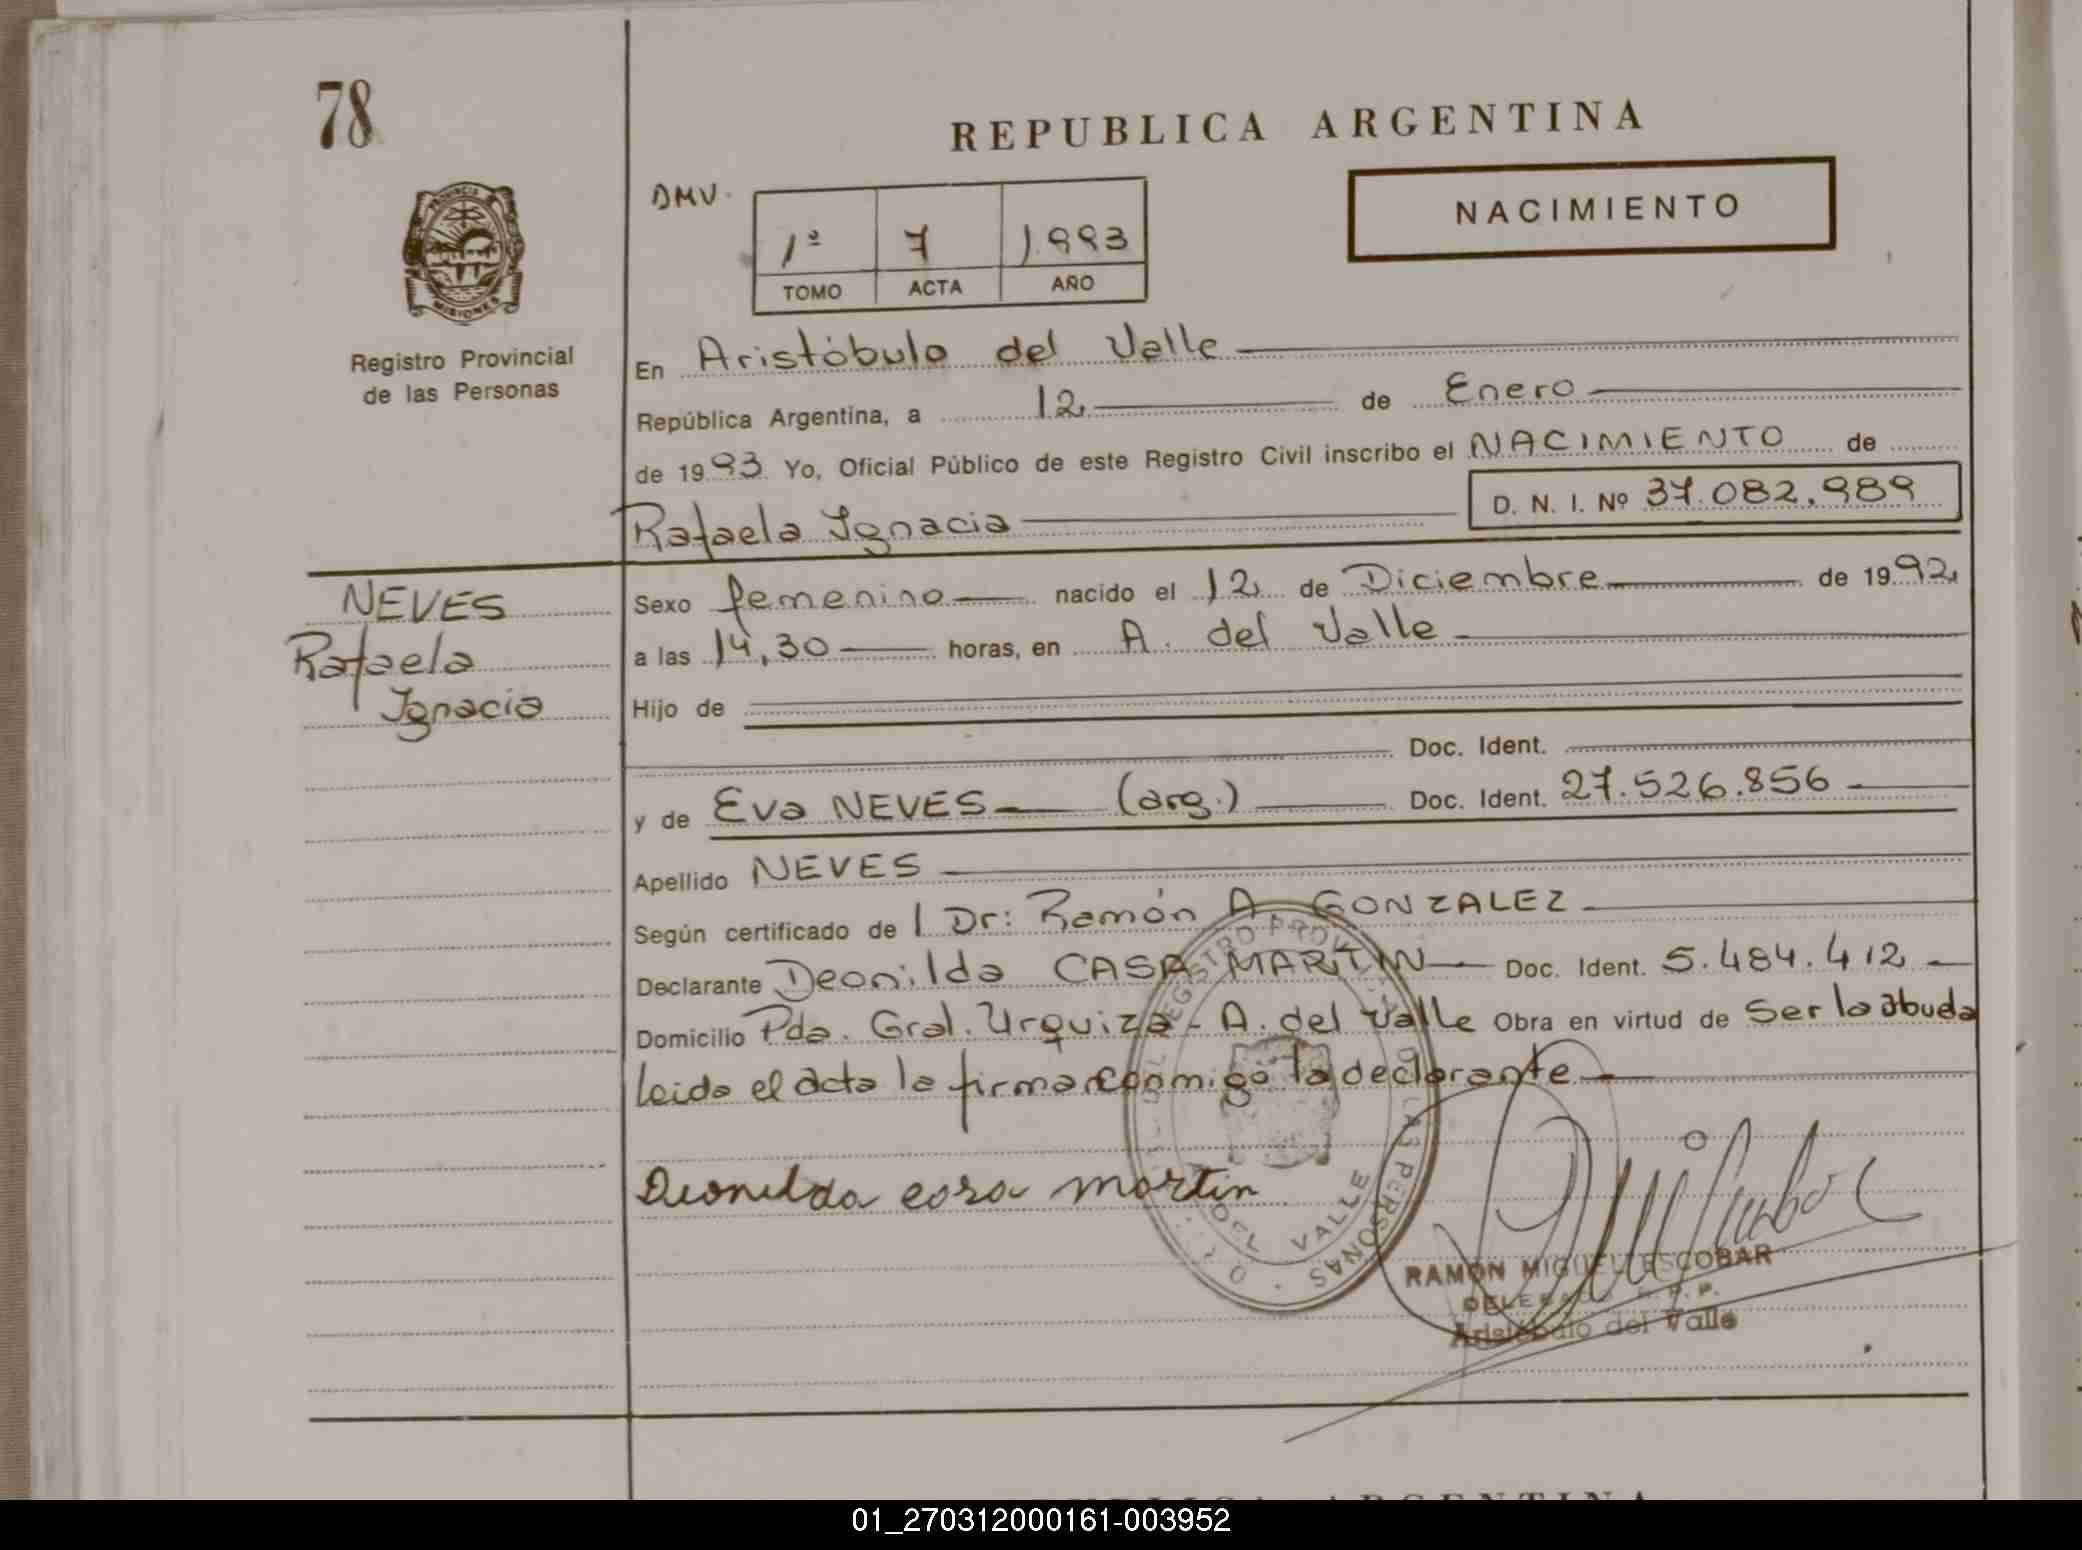 78
REPUBLICA ARGENTINA
NACIMIENTO
DMV.
1º 7 1.993
TOMO ACTA AÑO
PROVINCIA
MISIONES
Registro Provincial
de las Personas
En Aristóbulo del Valle
República Argentina, a 12 de Enero
de 1993 Yo, Oficial Público de este Registro Civil inscribo el NACIMIENTO de
D. N. I. Nº 37.082.989
Rafaela Ignacia
NEVES
Rafaela
Ignacia
Sexo femenino nacido el 12 de Diciembre de 1992
a las 14,30 horas, en A. del Valle
Hijo de
Doc. Ident.
y de Eva NEVES (arg.) Doc. Ident. 27.526.856
Apellido NEVES
Según certificado de l Dr: Ramón A. GONZALEZ
Declarante Deonilda CASA MARTIN Doc. Ident. 5.484.412
Domicilio Pda. Gral. Urquiza - A. del Valle Obra en virtud de Ser la abuela
leida el acta la firma conmigo la declarante
Deonilda casa martin
REGISTRO PROV DE LAS PERSONAS
DEL VALLE
RAMON MIGUEL ESCOBAR
DELEGADO R. P. P.
Aristóbulo del Valle
01_270312000161-003952